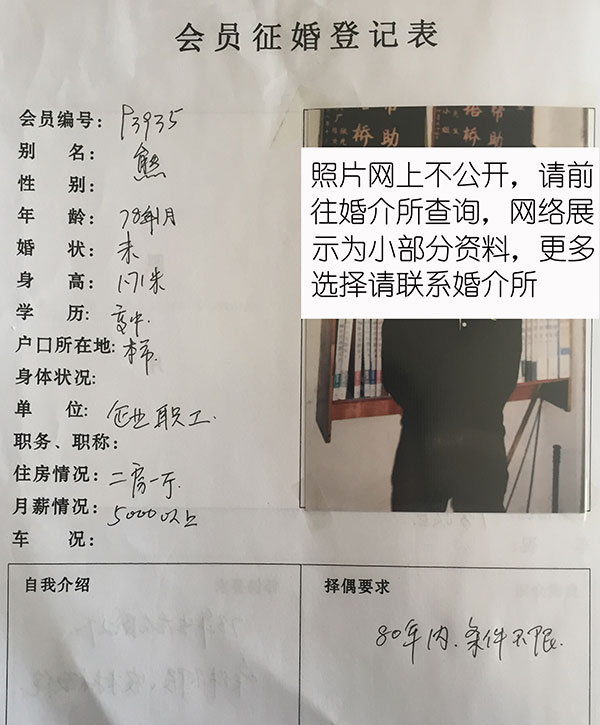 会员征婚登记表
会员编号：P3935
别　名：熊
性　别：
年　龄：78年1月
婚　状：未
身　高：1.71米
学　历：高中.
户口所在地：本市.
身体状况:
单　位：企业职工.
职务、职称：
住房情况：二房一厅
月薪情况：5000以上
车　况：
帮助
桥
照片网上不公开，请前
往婚介所查询，网络展
示为小部分资料，更多
选择请联系婚介所
自我介绍
择偶要求
80年内.条件不限.